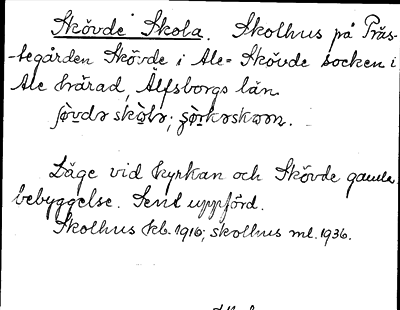 Skövde Skola. Skolhus på Präs-
-tegården Skövde i Ale-Skövde socken i
Ale härad, Älfsborgs län.

Läge vid kyrkan och Skövde gamla
bebyggelse. Sent uppförd.
Skolhus kb. 1916; skolhus ml. 1936.